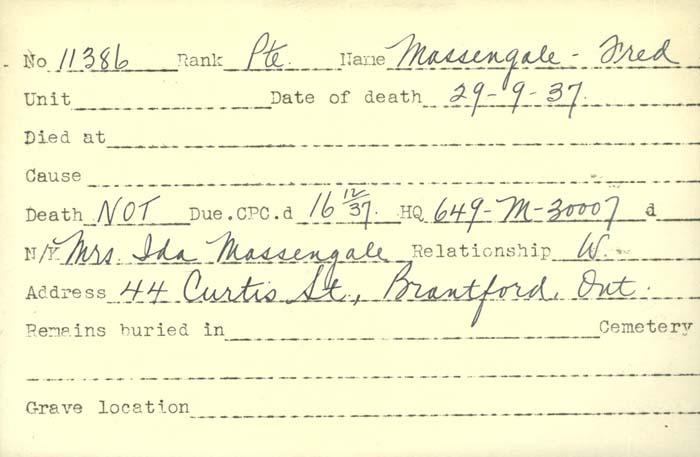 No 11386 Rank Pte. Name Massengale - Fred
Unit Date of death 29-9-37.
Died at
Cause
Death NOT Due.CPC.d 16 12/37. HQ 649-M-30007 d
N/K Mrs. Ida Massengale Relationship W.
Address 44 Curtis St., Brantford, Ont.
Remains buried in Cemetery
Grave location